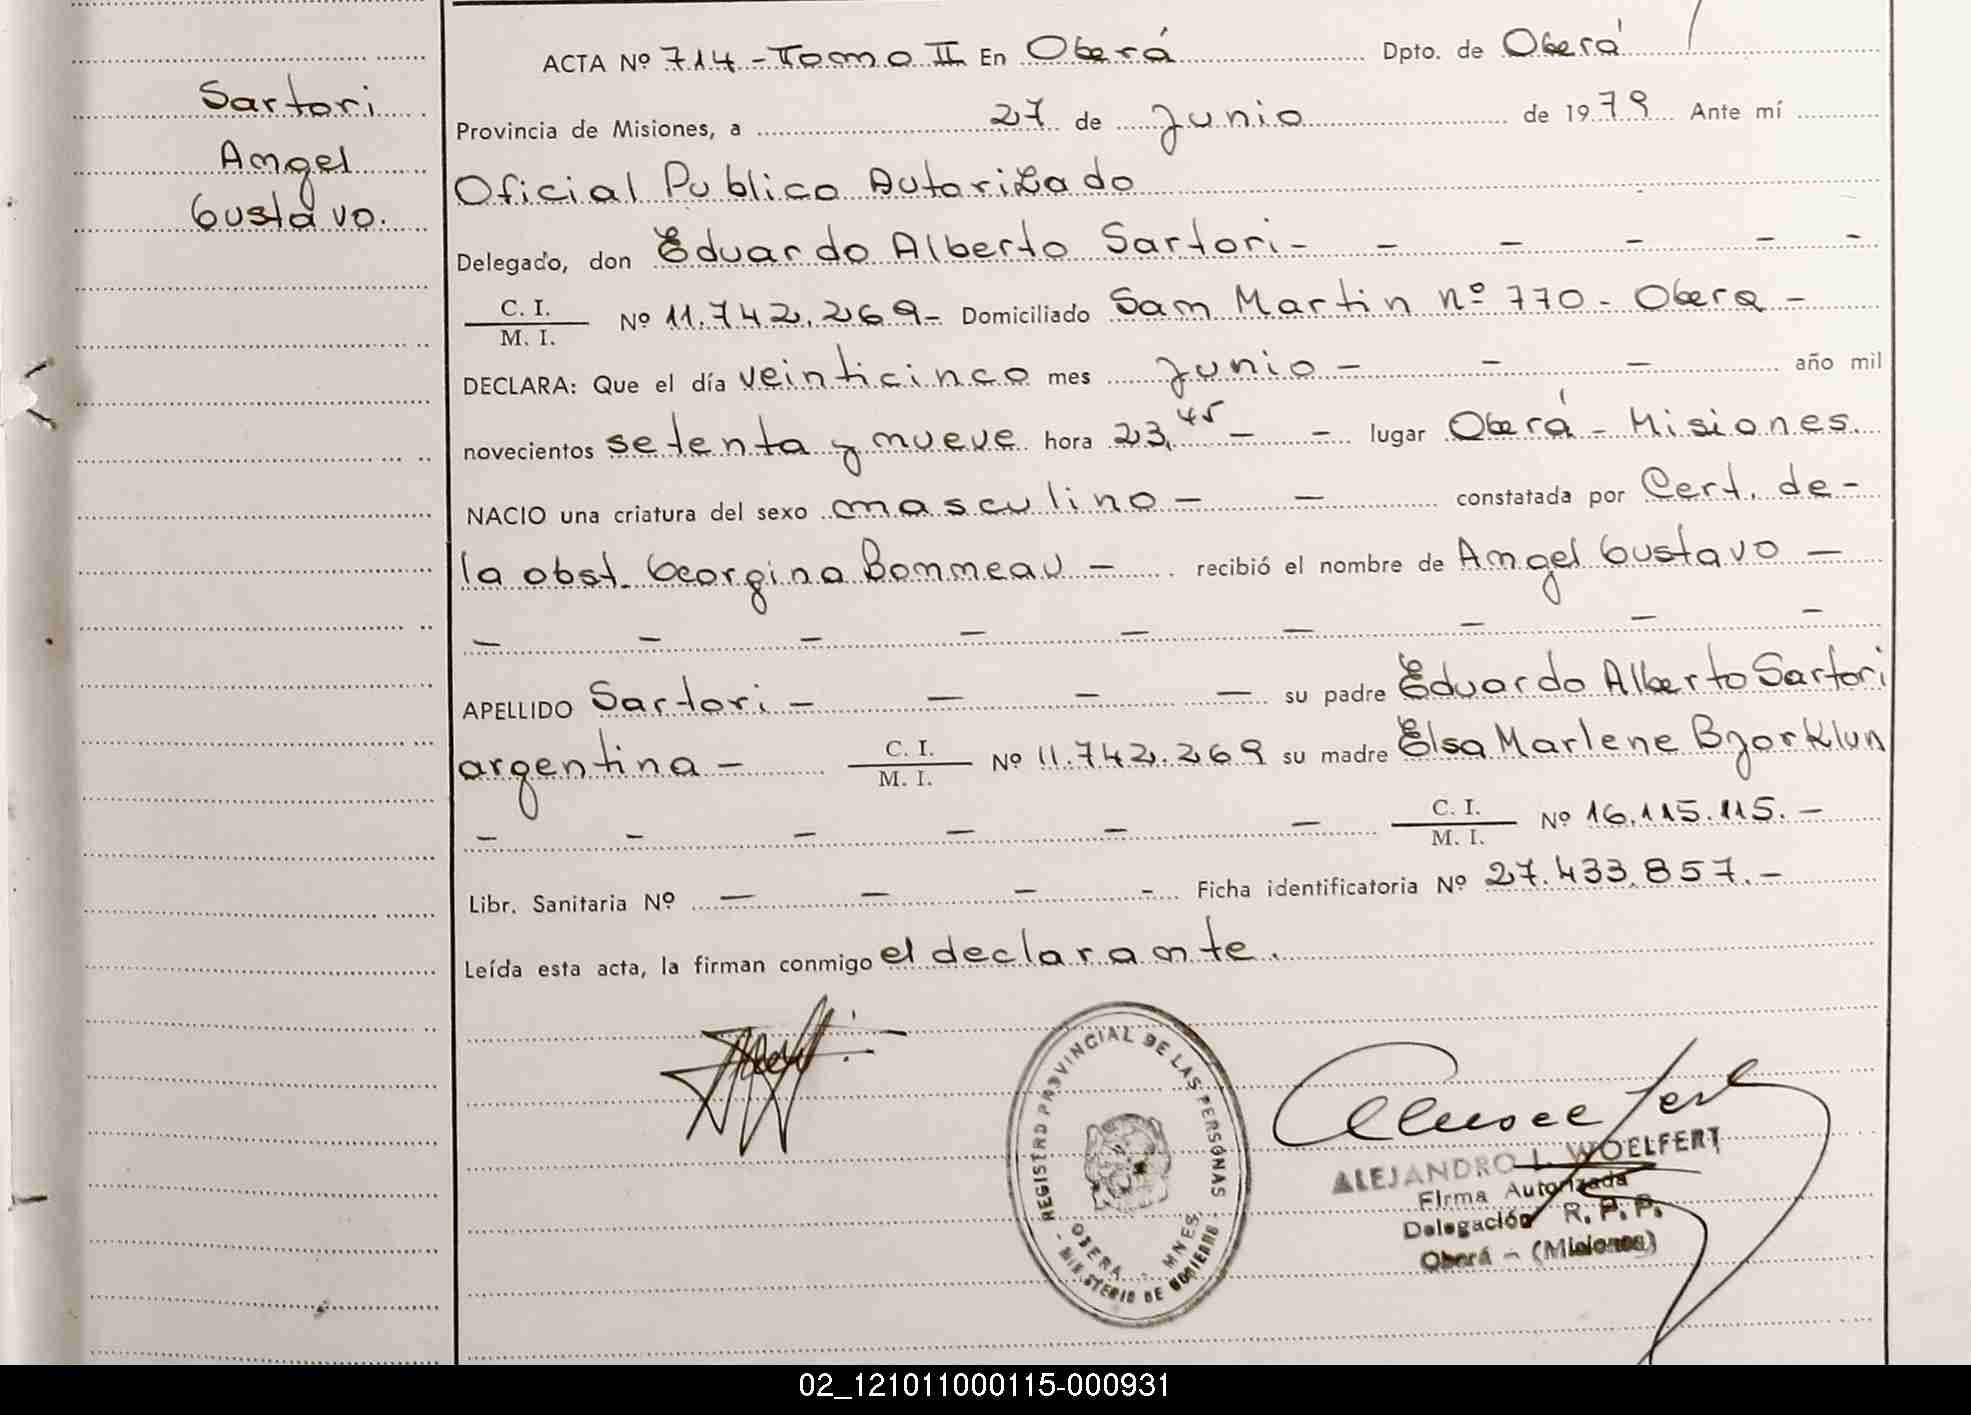 Sartori
Angel
Gustavo.
ACTA Nº 714 - Tomo II En Oberá Dpto. de Oberá
Provincia de Misiones, a 27 de Junio de 1979 Ante mí
Oficial Publico Autorizado
Delegado, don Eduardo Alberto Sartori - - - - - -
C. I.
M. I.
Nº 11.742.269 - Domiciliado San Martin nº 770 - Obera -
DECLARA: Que el día veinticinco mes Junio - - - año mil
novecientos setenta y nueve hora 23,45 - - lugar Oberá - Misiones.
NACIO una criatura del sexo masculino - - constatada por Cert. de -
la obst. Georgina Bonneau - recibió el nombre de Angel Gustavo -
- - - - - - - - -
APELLIDO Sartori - - - - su padre Eduardo Alberto Sartori
argentina - C. I.
M. I.
Nº 11.742.269 su madre Elsa Marlene Bjorklun
- - - - - - C. I.
M. I.
Nº 16.115.115. -
Libr. Sanitaria Nº - - - - Ficha identificatoria Nº 27.433.857. -
Leída esta acta, la firman conmigo el declarante.
REGISTRO PROVINCIAL DE LAS PERSONAS
OBERA - MNES.
- MINISTERIO DE GOBIERNO -
ALEJANDRO L. WOELFERT
Firma Autorizada
Delegación R. P. P.
Oberá - (Misiones)
02_121011000115-000931